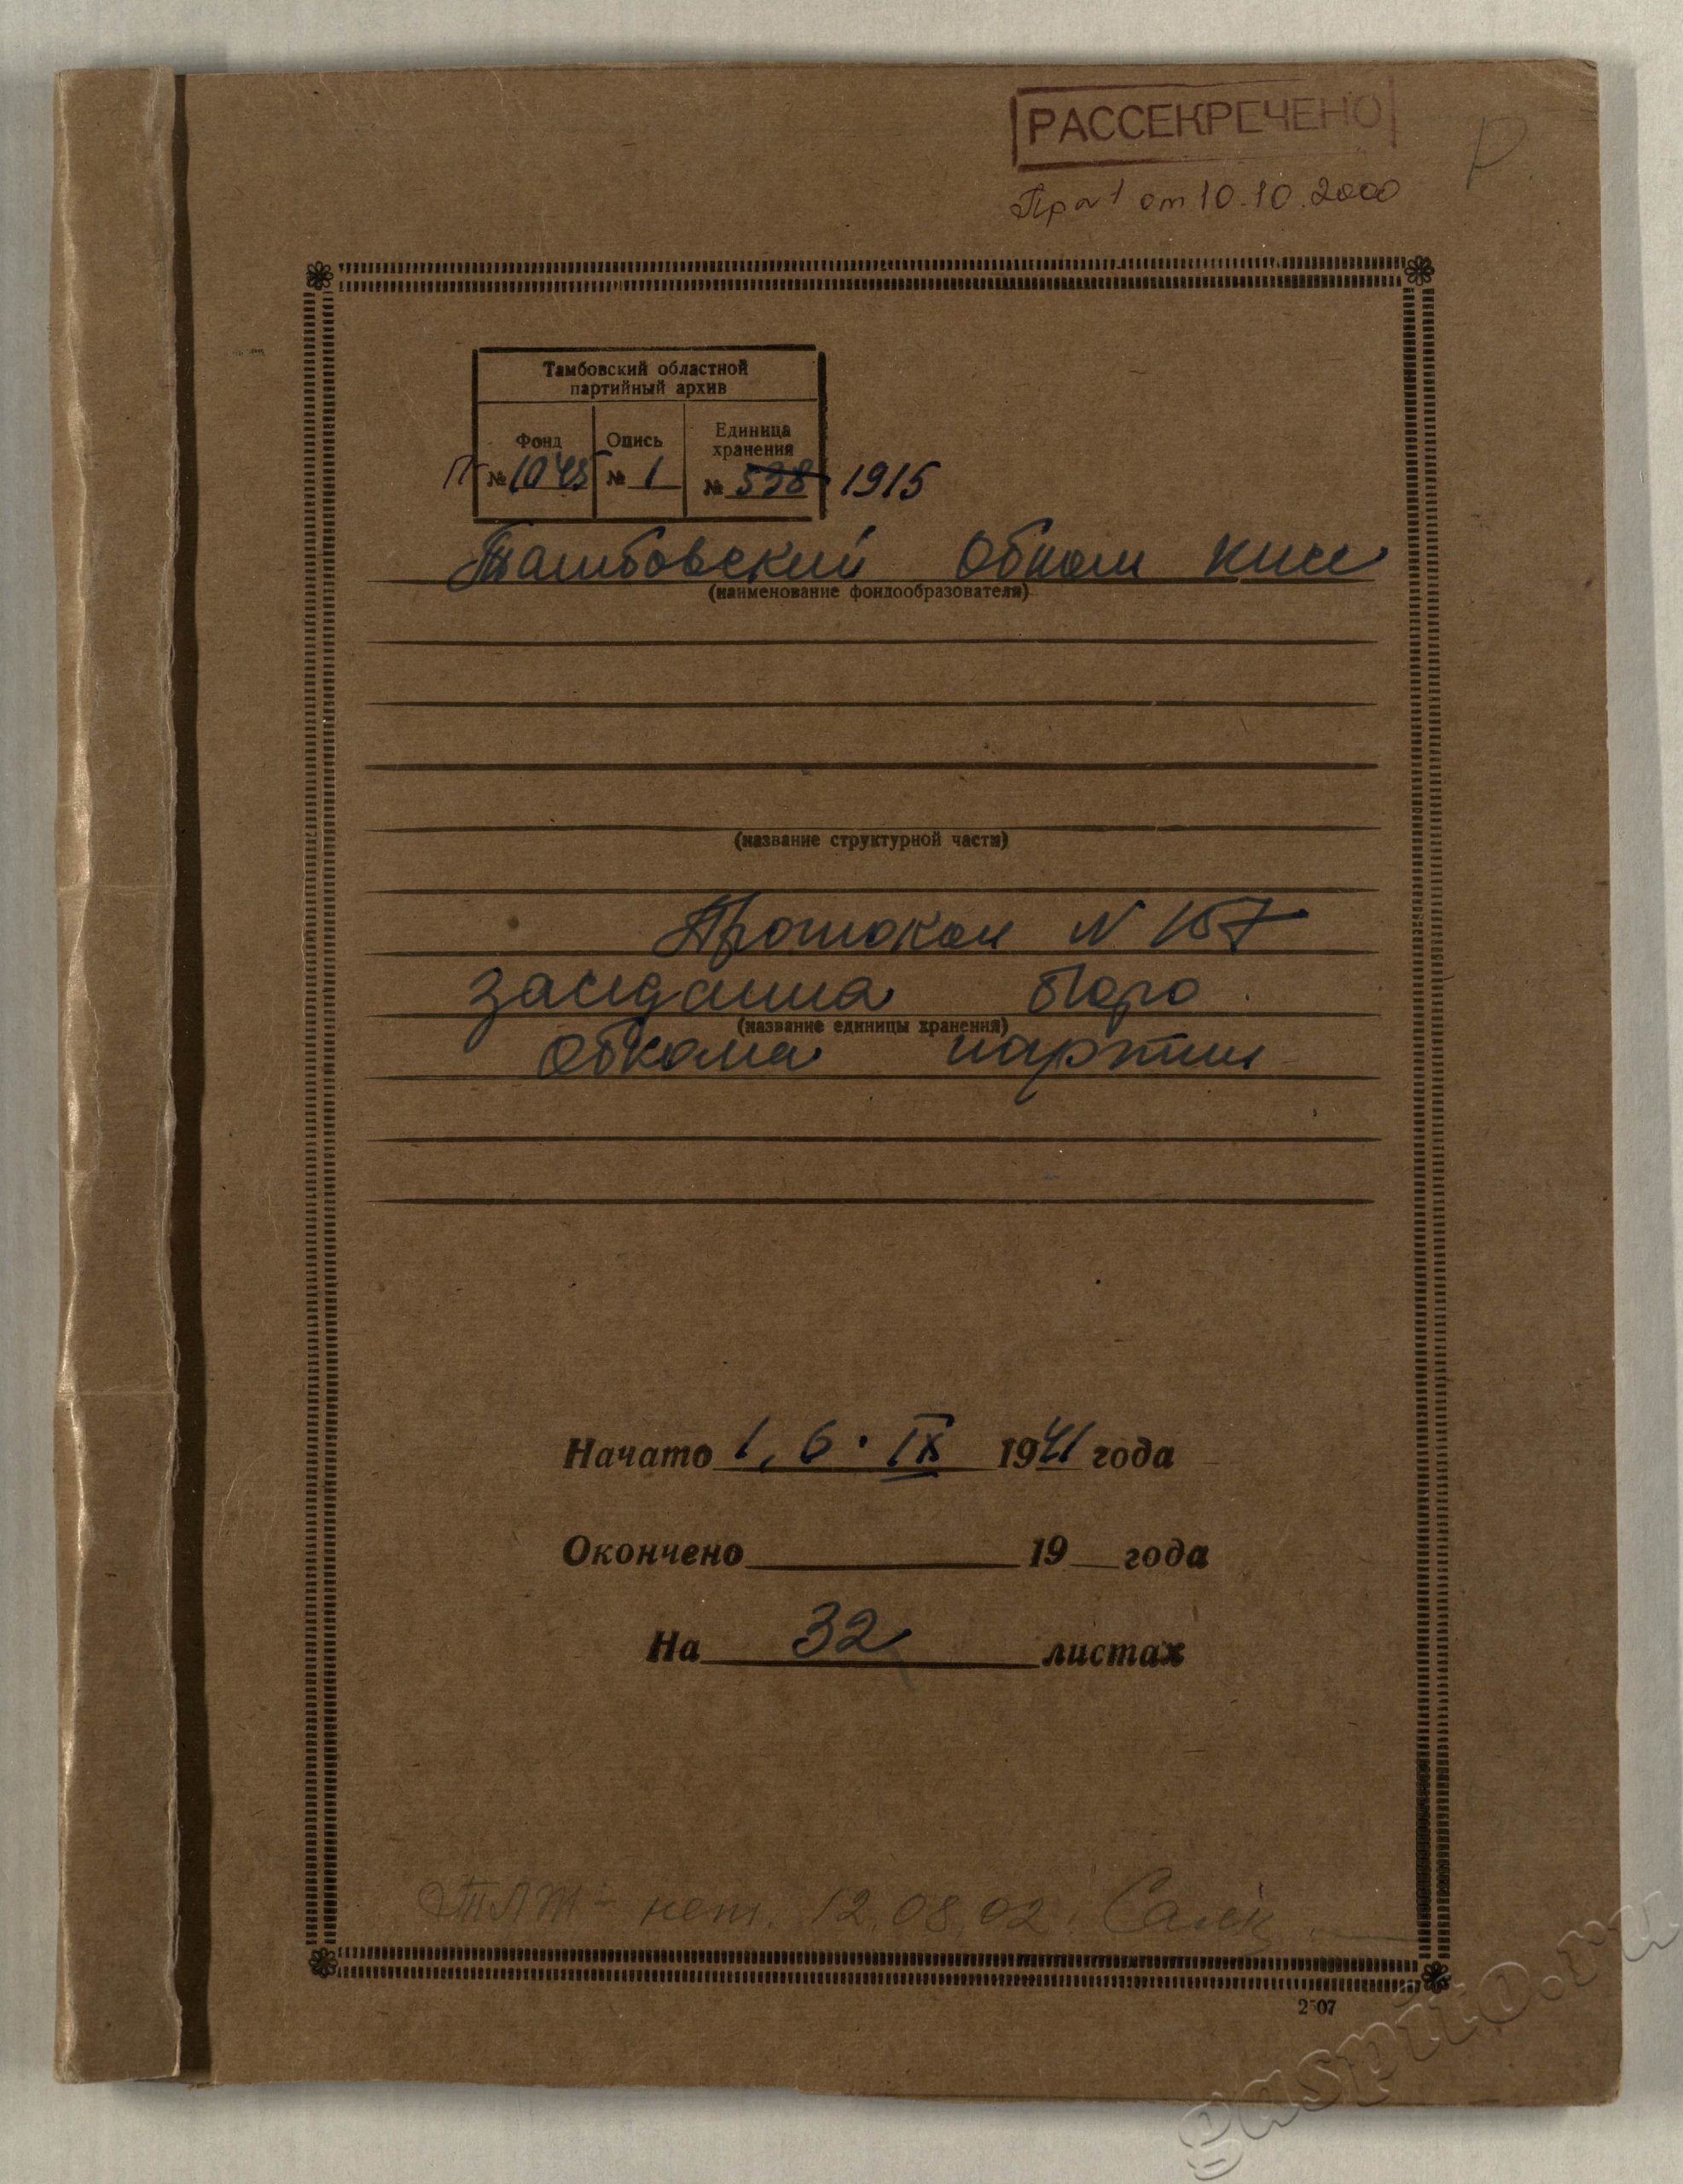 РАССЕКРЕЧЕНО
Пр №1 от 10.10.2000
Р
Тамбовский областной
партийный архив
Фонд Опись Единица хранения
П № 1045 № 1 № 538 1915
Тамбовский Обком КПСС
(наименование фондообразователя)
(название структурной части)
Протокол N 157
заседания бюро
(название единицы хранения)
Обкома партии
Начато 1, 6. IX 1941 года
Окончено 19 года
На 32 листах
нет. 12.08.02.
2507
gaspito.ru